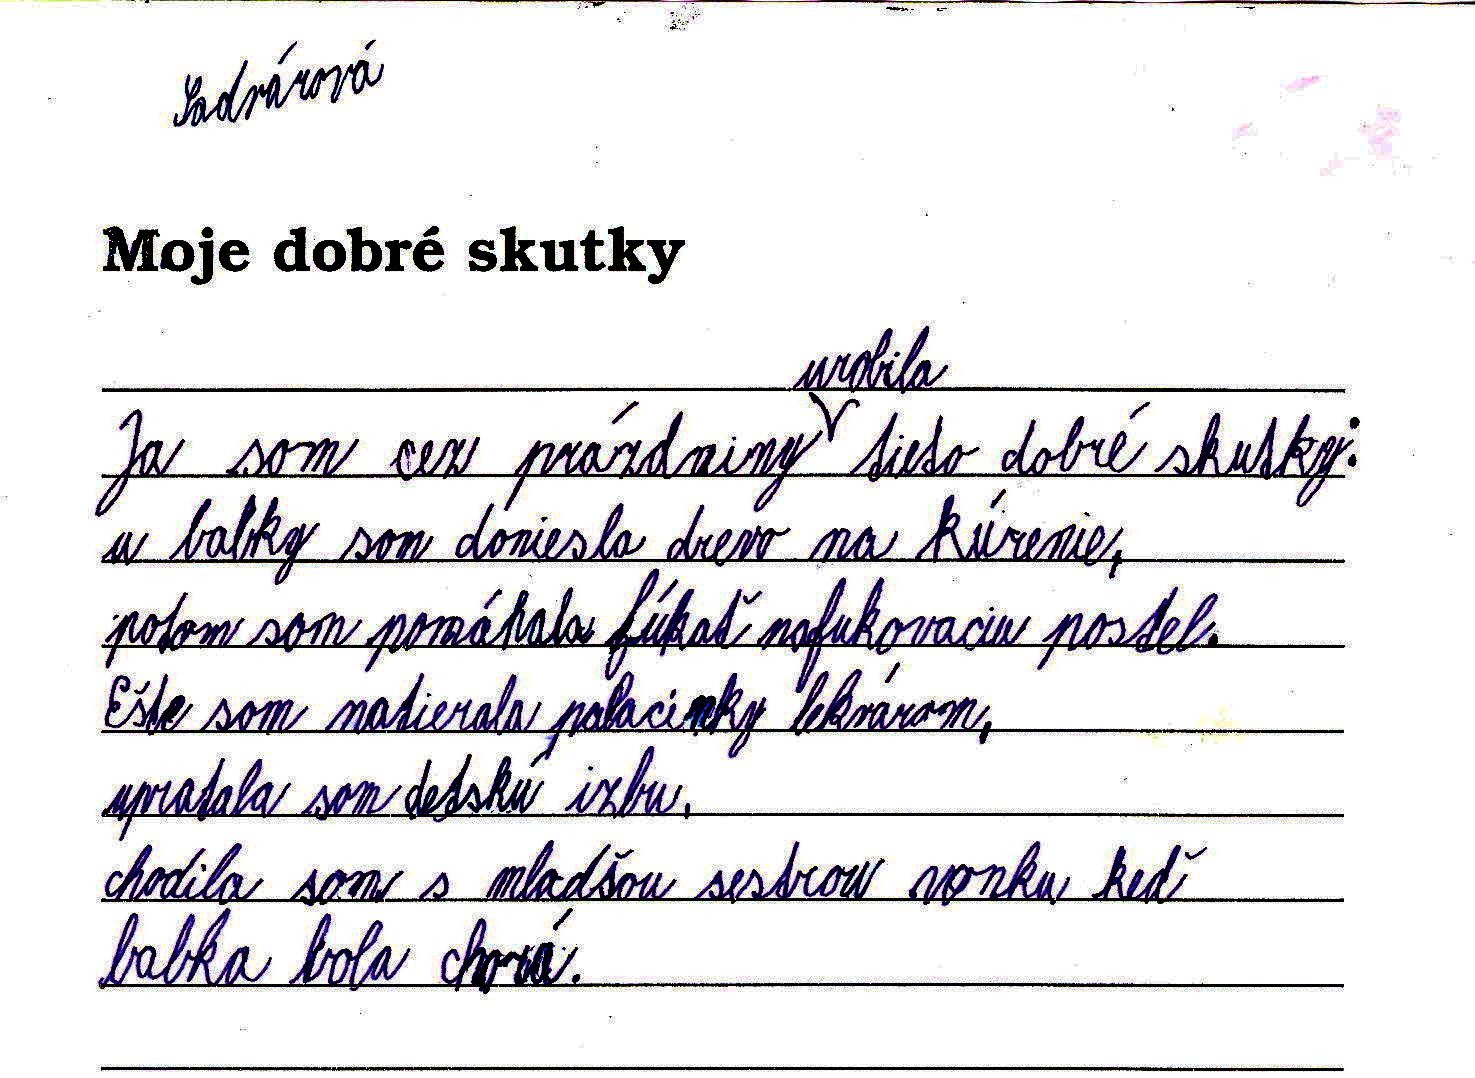 Sadvárová
Moje dobré skutky
urobila
Ja som cez prázdniny tieto dobré skutky:
u babky som doniesla drevo na kúrenie,
potom som pomáhala fúkať nafukovaciu postel.
Ešte som natierala palacinky lekvárom,
upratala som detskú izbu,
chodila som s mladšou sestrou vonku keď
babka bola chorá.